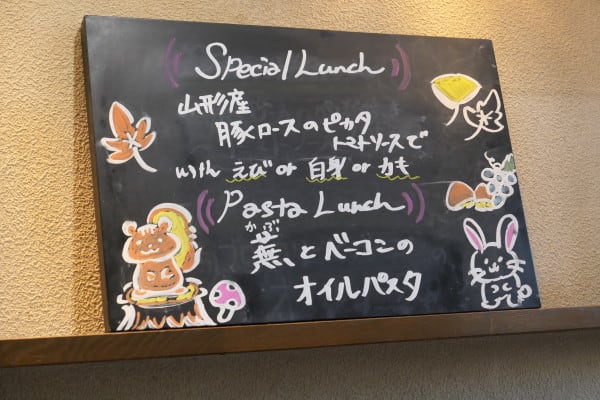 Special Lunch
山形産
豚ロースのピカタ
トマトソースで
with えび or 白身 or かき
Pasta Lunch
かぶ
蕪とベーコンの
オイルパスタ